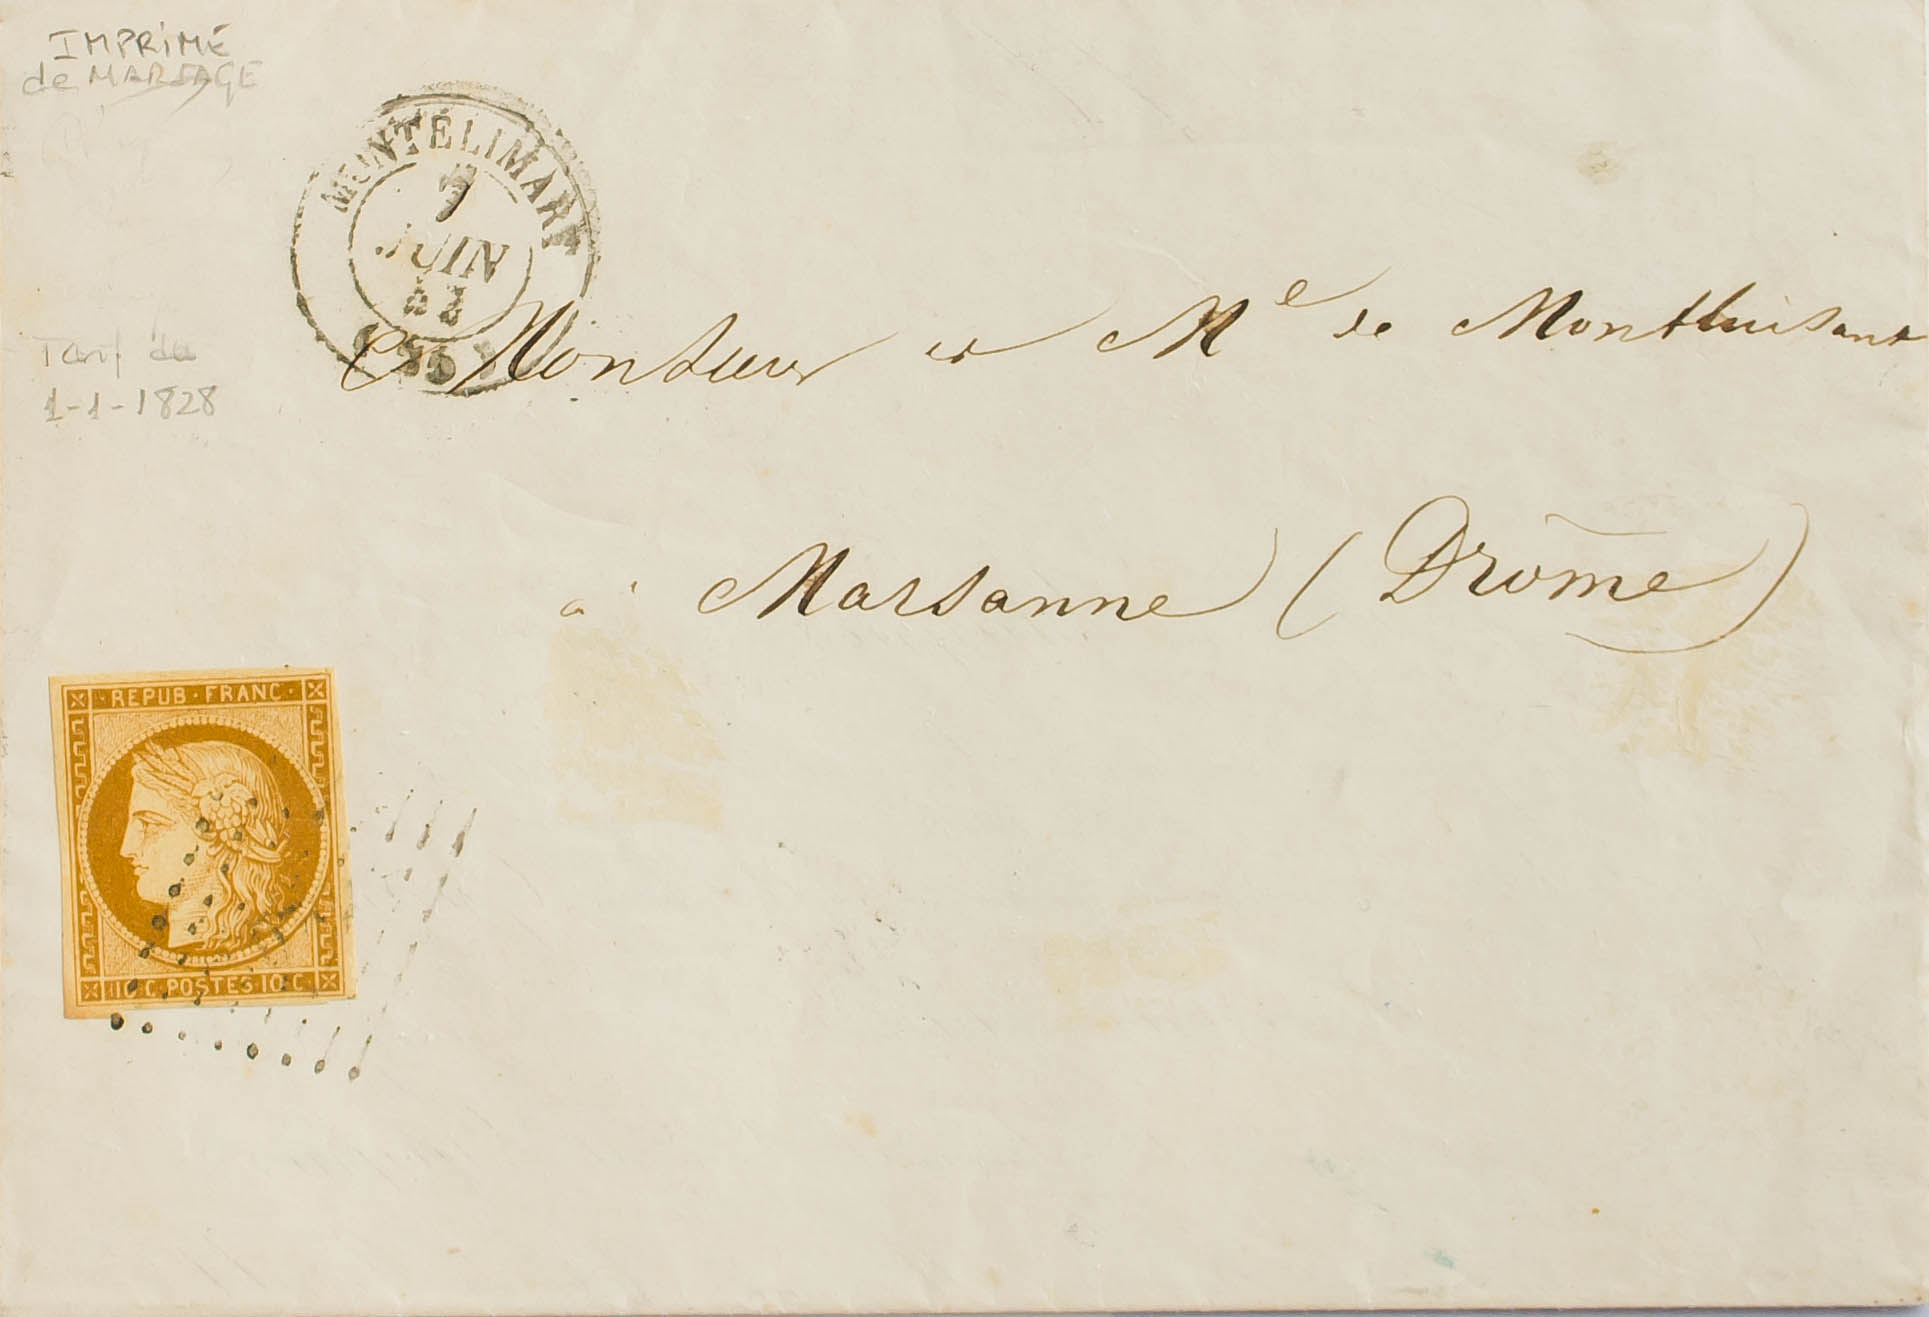 IMPRIMÉ
de MARIAGE
MONTÉLIMART
7
JUIN
(25)
Tarif du
1-1-1828
Monsieur et Me de Monthuisant
à Marsanne (Drôme)
REPUB·FRANC·
10·C·POSTES·10·C·